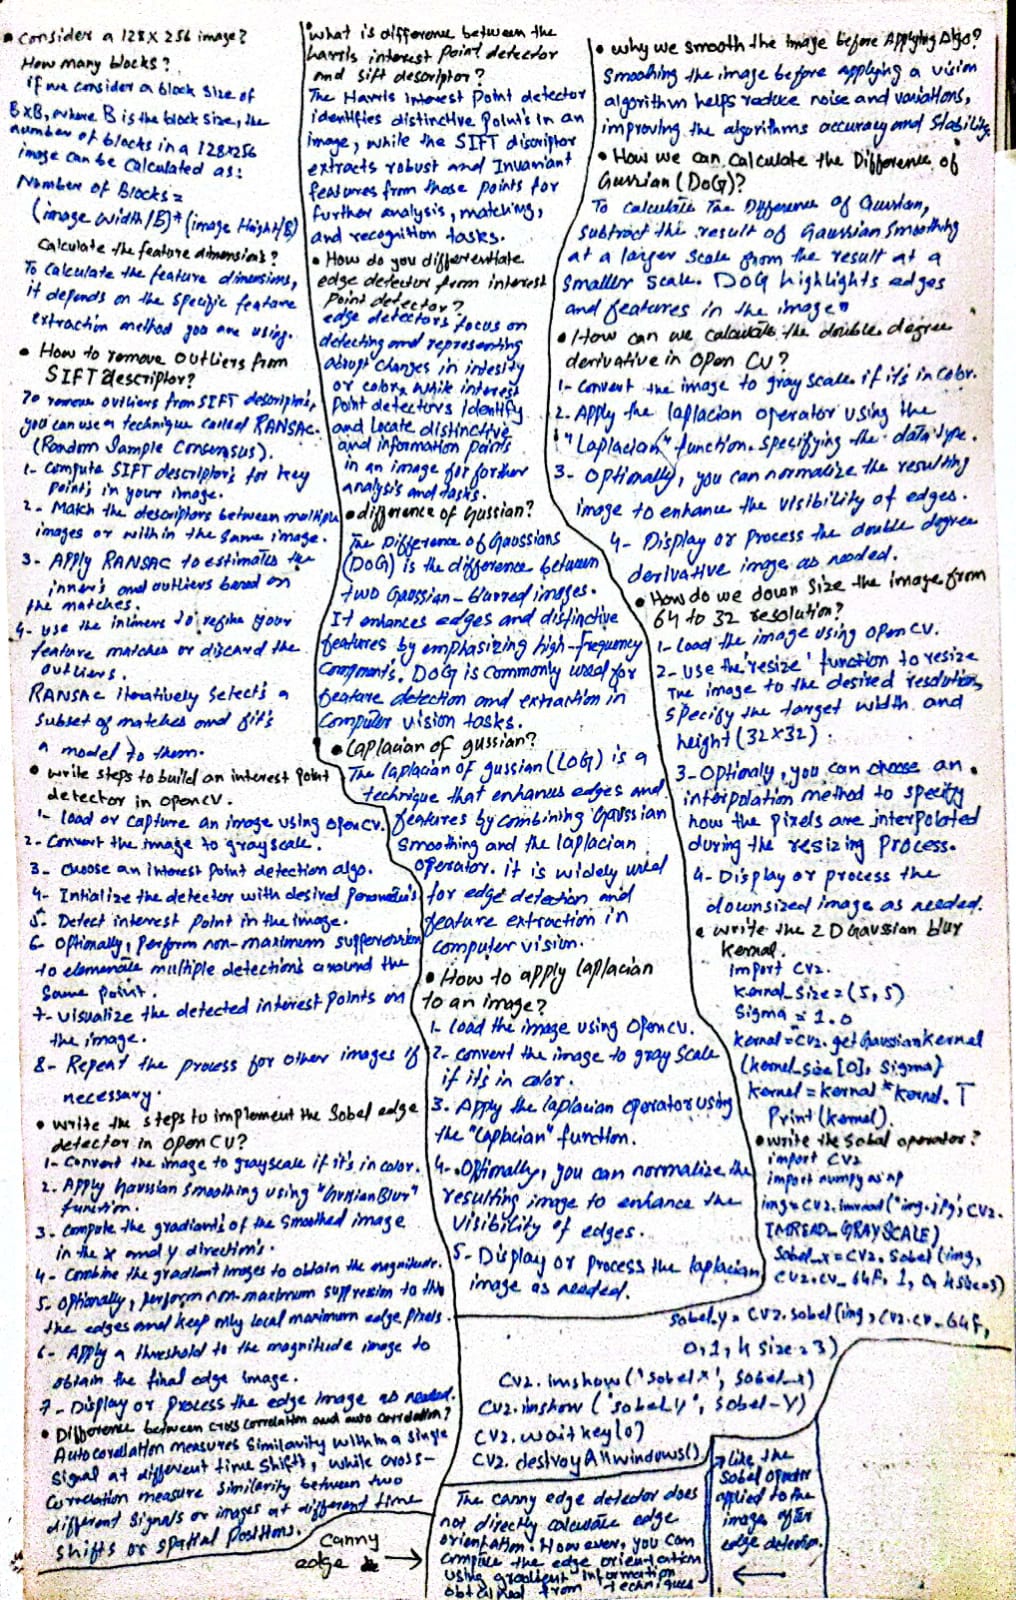 • Consider a 128x256 image?
How many blocks?
if we consider a block size of
BxB, where B is the block size, the
number of blocks in a 128x256
image can be calculated as:
Number of Blocks =
(image width/B)*(image Height/B)
Calculate the feature dimension's?
To calculate the feature dimensions,
it depends on the specific feature
extraction method you are using.
• How to remove outliers from
SIFT descriptor?
To remove outliers from SIFT descriptors,
you can use a technique called RANSAC.
(Random Sample Consensus).
1- Compute SIFT descriptors for key
points in your image.
2- Match the descriptors between multiple
images or within the same image.
3- Apply RANSAC to estimate the
inners and outliers based on
the matches.
4- use the inliners to refine your
feature matches or discard the
outliers.
RANSAC iteratively select's a
subset of matches and fit's
a model to them.
• write steps to build an interest point
detector in opencv.
1- load or capture an image using opencv.
2- Convert the image to grayscale.
3- choose an interest point detection algo.
4- Initialize the detector with desired
5- Detect interest point in the image.
6- optionally, perform non-maximum
to multiple detections around the
same point.
7- visualize the detected interest points on
the image.
8- Repeat the process for other images if
necessary.
• write the steps to implement the Sobel edge
detector in OpenCV?
1- Convert the image to grayscale if it's in color.
2. Apply Gaussian smoothing using
function.
3- Compute the gradients of the smoothed image
in the x and y direction's.
4- Combine the gradient images to obtain the magnitude.
5- optionally, perform non-maximum suppression to thin
the edges and keep only local maximum edge pixels.
6- Apply a threshold to the magnitude image to
obtain the final edge image.
7- Display or process the edge image as needed.
• Difference between cross correlation and auto correlation?
Auto correlation measures similarity within a single
signal at different time shifts, while cross-
correlation measure similarity between two
different signals or images at different time
shifts or spatial positions.
• what is difference between the
harris interest point detector
and sift descriptor?
The Harris interest point detector
identifies distinctive points in an
image, while the SIFT discriptor
extracts robust and Invariant
features from those points for
further analysis, matching,
and recognition tasks.
• How do you differentiate
edge detector from interest
point detector?
edge detectors focus on
detecting and representing
abrupt changes in intesity
or color, while interest
point detectors identify
and locate distinctive
and information points
in an image for further
analysis and tasks.
• difference of Gussian?
The Difference of Gaussians
(DoG) is the difference between
two Gaussian-blurred images.
It enhances edges and distinctive
features by emphasizing high-frequency
Components. DoG is commonly used for
feature detection and extraction in
Computer vision tasks.
• Laplacian of gussian?
The laplacian of gussian (LoG) is a
technique that enhances edges and
features by combining Gaussian
smoothing and the laplacian
operator. it is widely used
for edge detection and
feature extraction in
computer vision.
• How to apply laplacian
to an image?
1- load the image using opencv.
2- convert the image to gray scale
if it's in color.
3. Apply the laplacian operator using
the "Laplacian" function.
4- Optionally, you can normalize the
resulting image to enhance the
visibility of edges.
5- Display or process the laplacian
image as needed.
• why we smooth the image before Applying Algo?
Smoothing the image before applying a vision
algorithm helps reduce noise and variations,
improving the algorithms accuracy and stability.
• How we can calculate the Difference of
Gussian (DoG)?
To calculate The Difference of Gaussian,
subtract the result of Gaussian Smoothing
at a larger scale from the result at a
smaller scale. DoG highlights edges
and features in the image.
• How can we calculate the double degree
derivative in Open CV?
1- Convert the image to gray scale if it's in color.
2. Apply the laplacian operator using the
"Laplacian" function. specifying the data type.
3- Optionally, you can normalize the resulting
image to enhance the visibility of edges.
4- Display or process the double degree
derivative image as needed.
• How do we down size the image from
64 to 32 resolution?
1- Load the image using opencv.
2- Use the 'resize' function to resize
The image to the desired resolution,
specify the target width and
height (32x32).
3- Optionaly, you can choose an
interpolation method to specify
how the pixels are interpolated
during the resizing process.
4- Display or process the
downsized image as needed.
• write the 2D Gaussian blur
Kernel.
import cv2.
Kernal_size = (5,5)
Sigma = 1.0
kernel = cv2.getGaussiankernel
(kernel_size[0], sigma)
kernel = kernel * kernel.T
Print (kernel).
• write the sobal operator?
import cv2
import numpy as np
img = cv2.imread('img.jpg', cv2.
IMREAD_GRAYSCALE)
Sobel_x = cv2.Sobel(img,
cv2.cv_64F, 1, 0, ksize=3)
sobel_y = cv2.sobel(img, cv2.cv_64F,
0,1, ksize=3)
cv2.imshow('sobel x', sobel_x)
cv2.imshow('sobel y', sobel_y)
cv2.waitkey(0)
cv2.destroyAllwindows()
canny
edge →
The canny edge detector does
not directly calculate edge
orientation. However, you can
compute the edge orientation
using gradient information
obtained from techniques
→ like the
Sobel operator
applied to the
image after
edge detection.